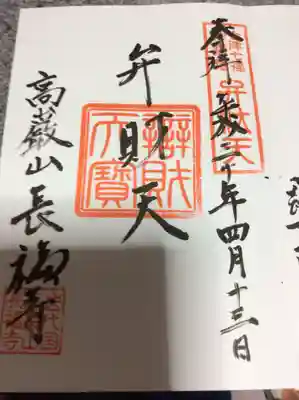 奉拝 平成三十年四月十三日
弁財天
辯財天寶
高巌山 長福寺